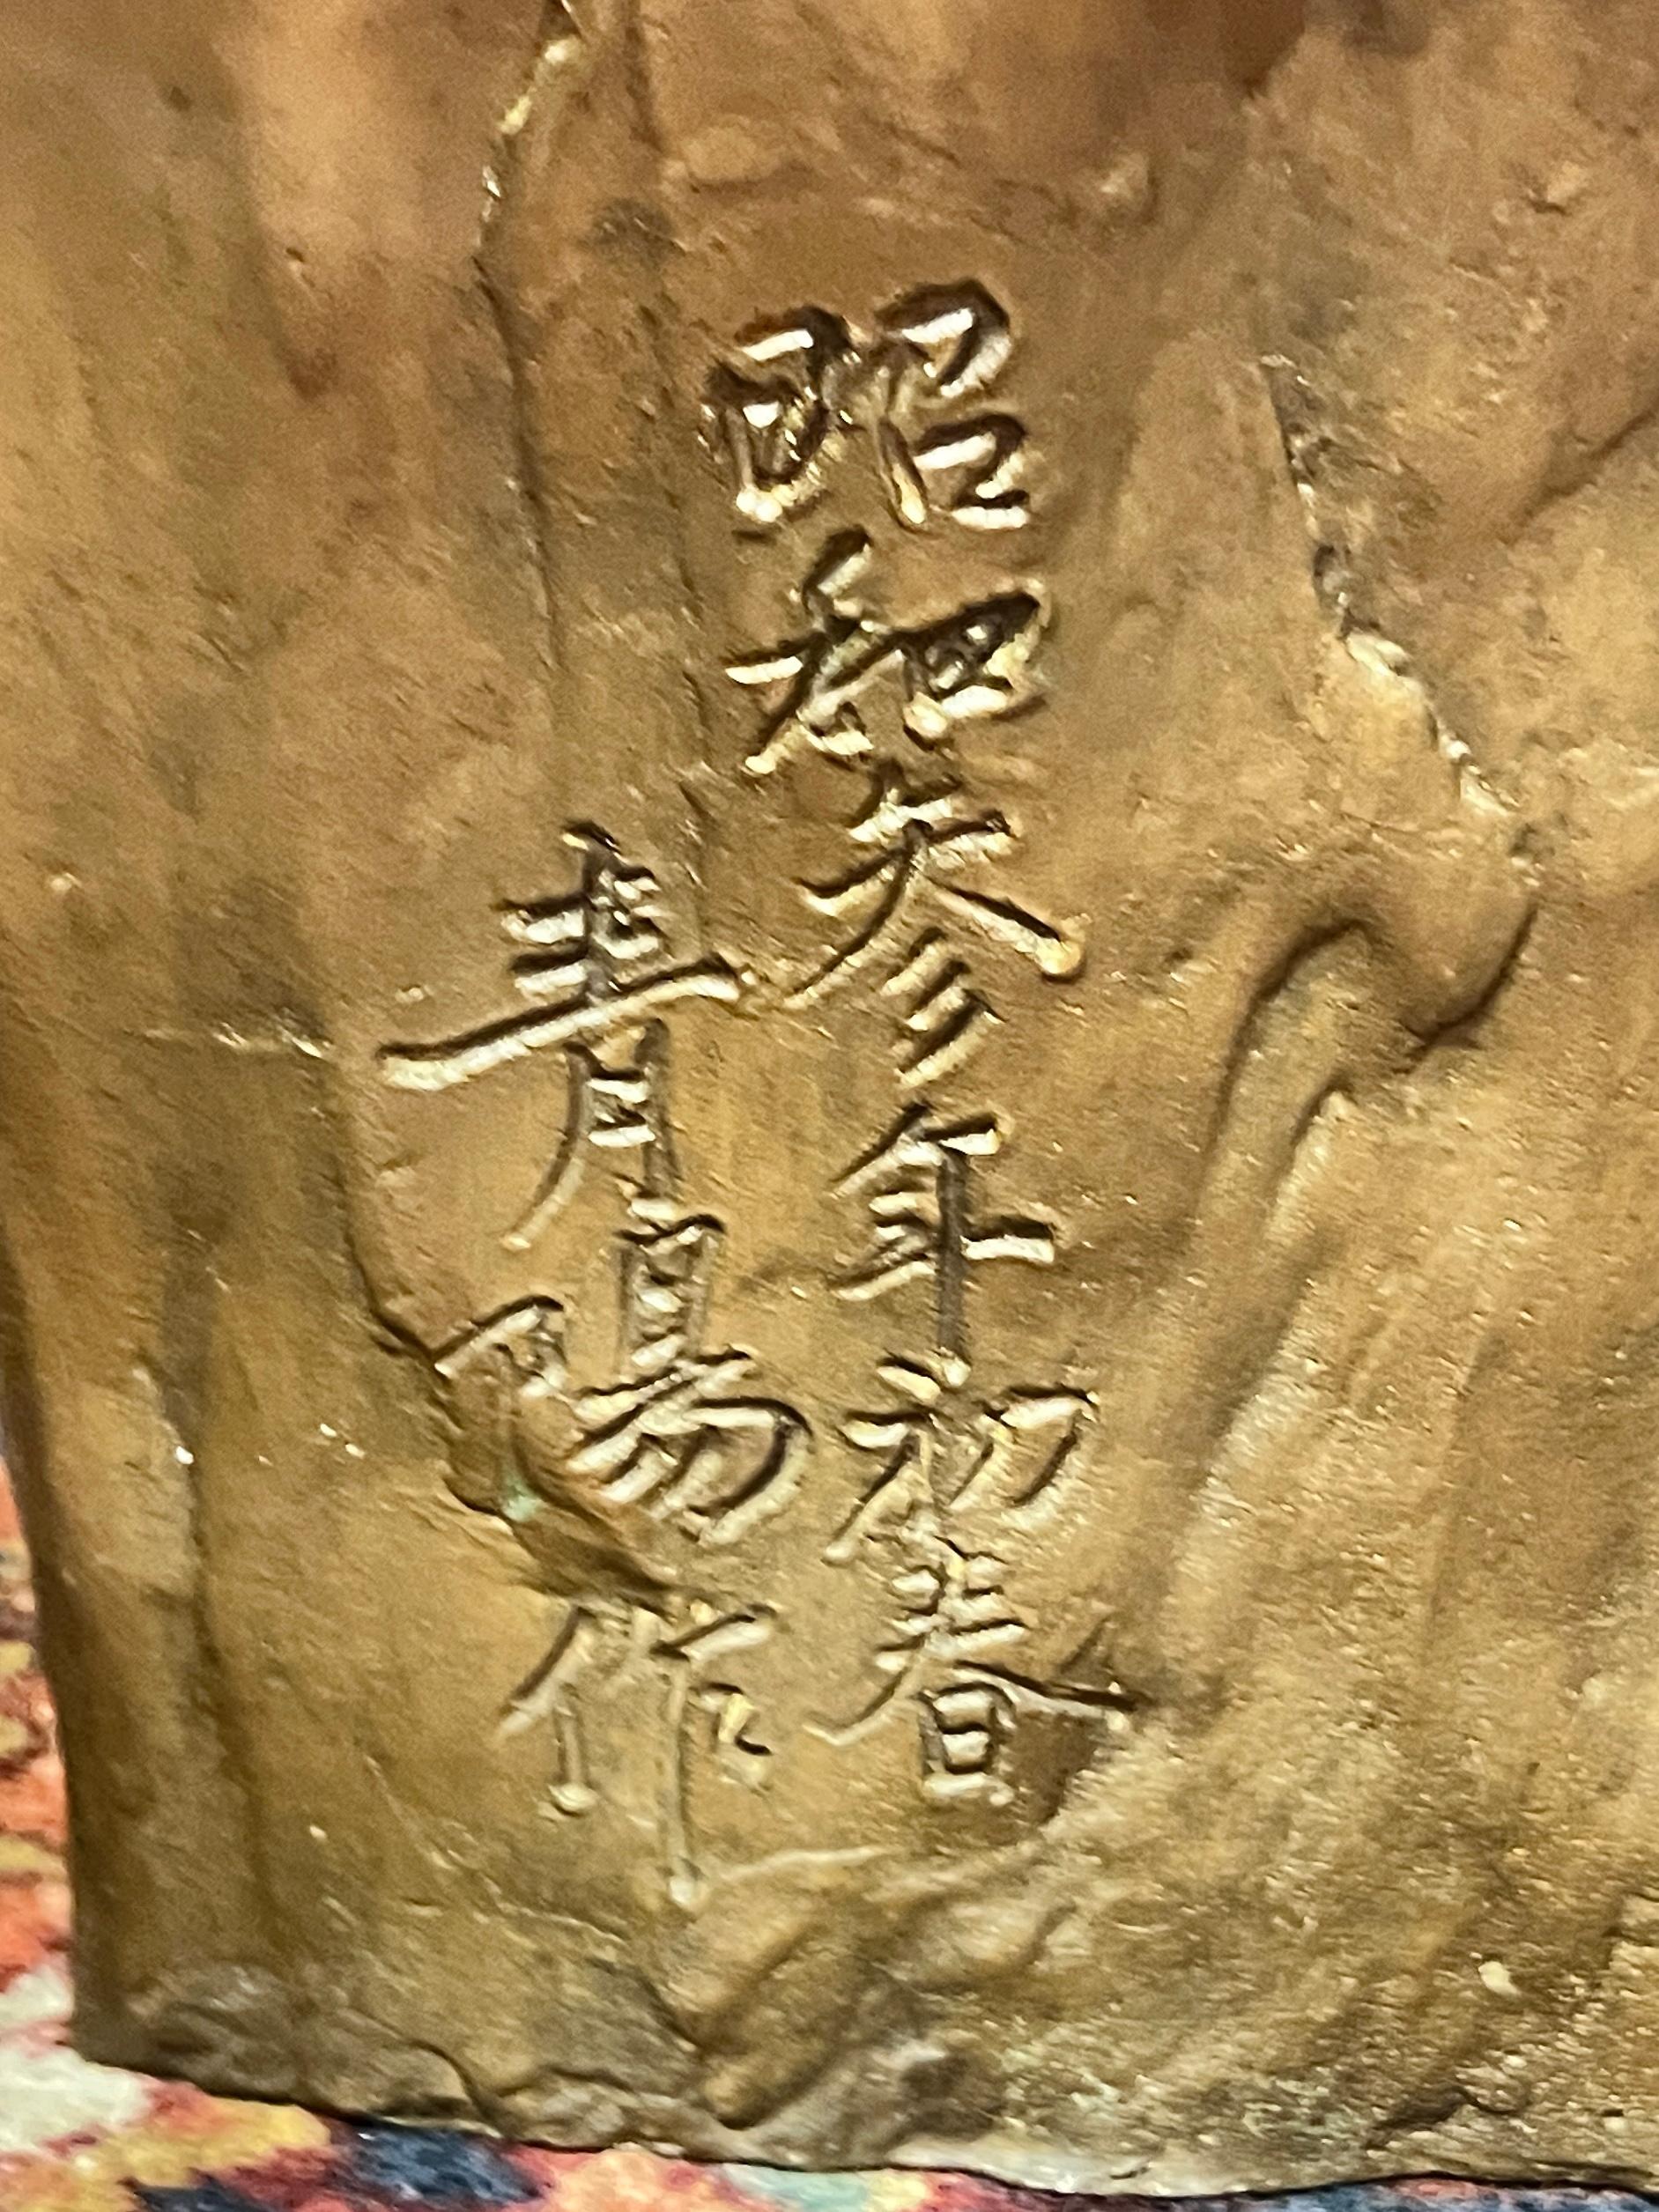 昭和参年初春
青陽作